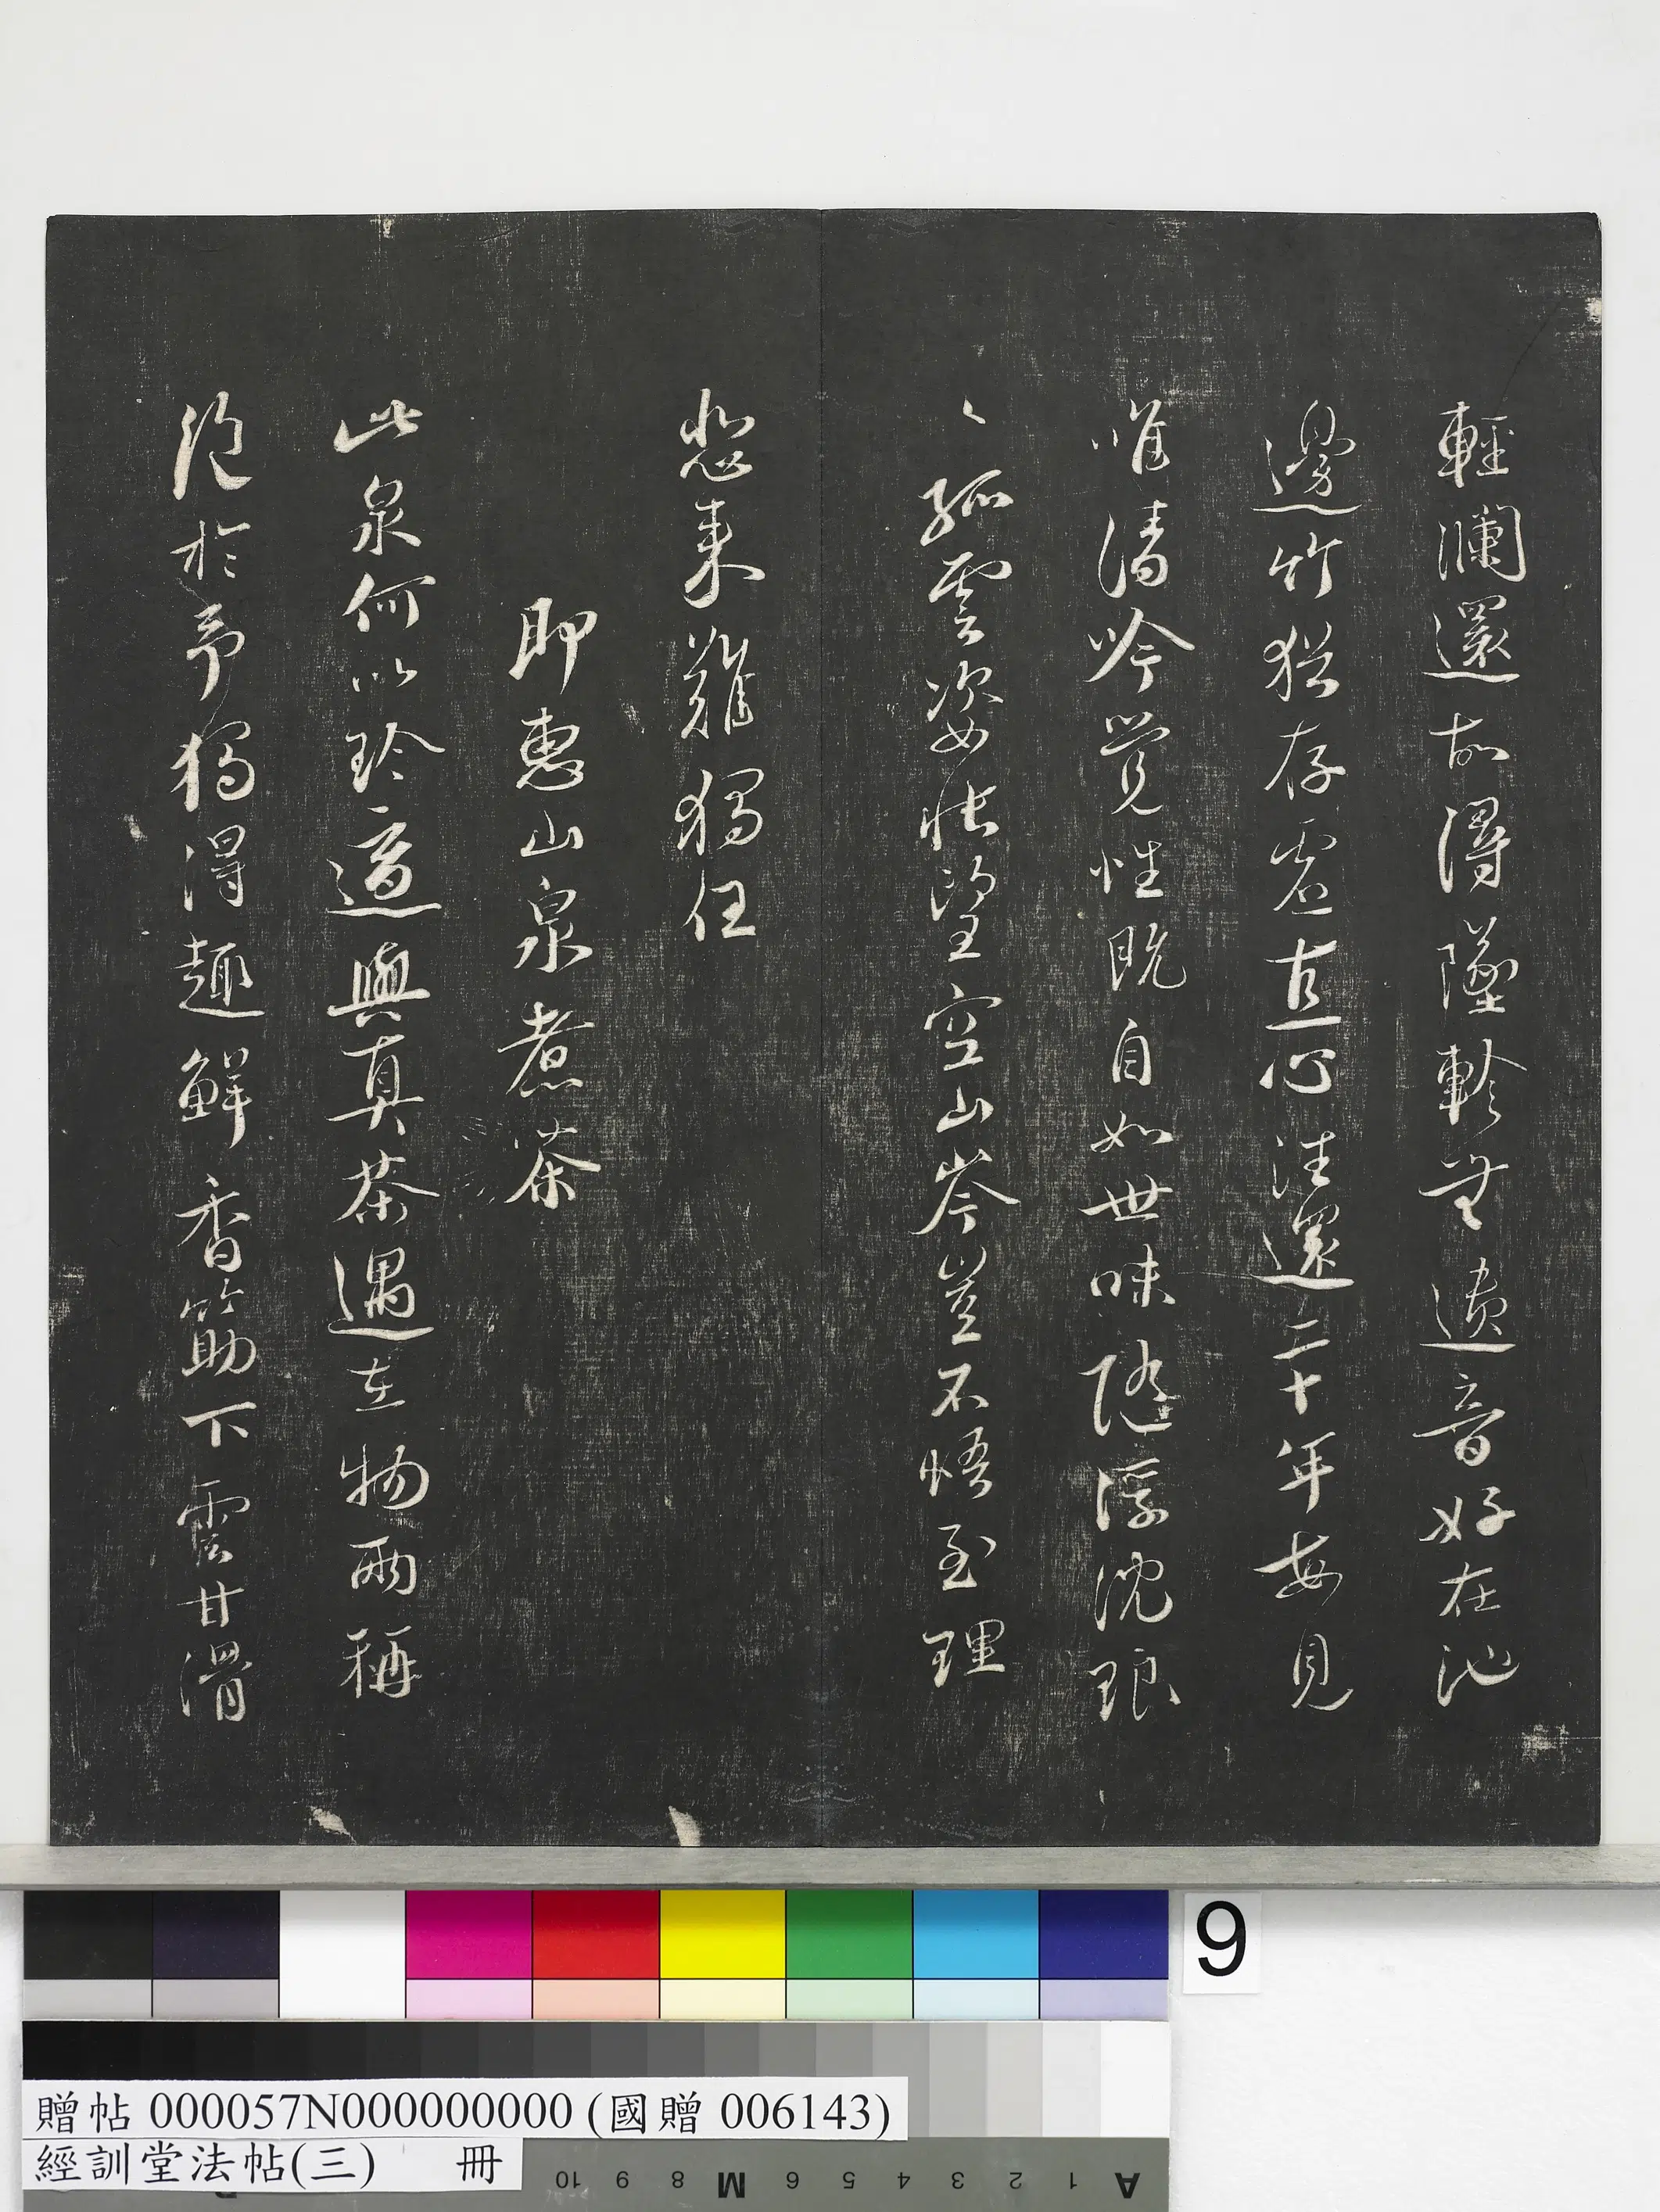 輕瀾還故潯墜軫無遺音好在池
邊竹猶存虛直心往還二十年每見
唯清吟覺性既自如世味隨浮沈琅
〻孤雲姿悵望空山岑豈不悟至理
悲來難獨任
即惠山泉煮茶
此泉何以珍適與真茶遇在物兩稱
絕於予獨得趣鮮香筯下雲甘滑
9
贈帖 000057N000000000 (國贈 006143)
經訓堂法帖(三) 冊
10 9 8 M 6 5 4 3 2 1 A